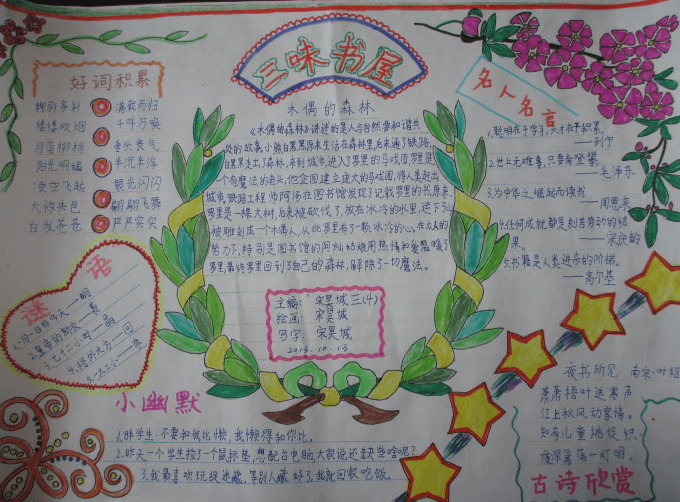 三味书屋
好词积累
婀丽多彩 满载而归
缕缕炊烟 千呼万唤
月落柳梢 垂头丧气
阳光明媚 半沉半浮
凌空飞起 银光闪闪
大惊失色 翩翩飞舞
白发苍苍 严严实实
木偶的森林
《木偶的森林》讲述的是人与自然要和谐共
处的故事。小熊白黑黑原来生活在森林里,后来通了铁路,
白黑黑走出了森林,来到城市,进入了罗里的马戏团,罗里是
一个有魔法的老头,他企图建立庞大的马戏团,将人类赶出
城市,铁路工程师阿汤在图书馆发现了记载罗里的书,原来
罗里是一棵大树,后来被砍伐了,放在冰冷的水里,还下
被雕刻成一个木偶人,从此罗里有了一颗冰冷的心,在众人的
努力下,特别是图书馆的阿灿姑娘用热情和爱温暖了
罗里,最终罗里回到了自己的森林,解除了一切魔法。
主编: 宋昊城 三(4)
绘画: 宋昊城
写字: 宋昊城
2013.10.13
名人名言
1.聪明在于学习,天才在于积累。
——列宁
2.世上无难事,只要肯登攀。
——毛泽东
3.为中华之崛起而读书
——周恩来
4.任何成就都是刻苦劳动的结
果。 ——宋庆龄
5.书籍是人类进步的阶梯。
——高尔基
谜语
3.七十二小时——晶
4.格外大方——回
小幽默
1.胖学生:不要和我比 懒,我懒得和你比。
2.昨天一个学生捡了个鼠标垫,想配台电脑,大家说还差些啥呢?
3.我最喜欢玩捉迷藏,等别人藏好了,我就回家吃饭。
夜书所见 南宋·叶绍
萧萧梧叶送寒声
江上秋风动客情。
知有儿童挑促织
夜深篱落一灯明。
古诗欣赏